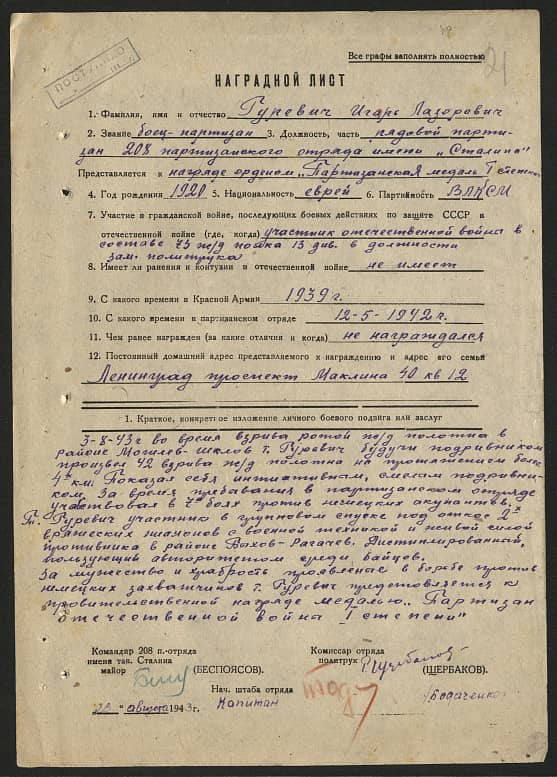 ПОСТУПИЛО
21
Все графы заполнять полностью
НАГРАДНОЙ ЛИСТ
1. Фамилия, имя и отчество Гуревич Игарь Лазорович
2. Звание боец-партизан 3. Должность, часть рядовой парти-
зан 208 партизанского отряда имени „Сталина"
Представляется к награде орденом „Партизанская медаль I степени
4. Год рождения 1920 5. Национальность еврей 6. Партийность ВЛКСМ
7. Участие в гражданской войне, последующих боевых действиях по защите СССР и
отечественной войне (где, когда) участник отечественной войны в
составе 73 ж/д полка 13 див. в должности
зам. политрука
8. Имеет ли ранения и контузии в отечественной войне не имеет
9. С какого времени в Красной Армии 1939 г.
10. С какого времени в партизанском отряде 12-5-1942 г.
11. Чем ранее награжден (за какие отличия и когда) не награждался
12. Постоянный домашний адрес представляемого к награждению и адрес его семьи
Ленинград проспект Маклина 40 кв 12
1. Краткое, конкретное изложение личного боевого подвига или заслуг
3-8-43 г во время взрыва ротой ж/д полотна в
районе Могилев-Шклов т. Гуревич будучи подрывником
произвел 42 взрыва ж/д полотна на протяжении более
4х км. Показал себя инициативным, смелым подрывни-
ком. За время пребывания в партизанском отряде
участвовал в 7и боях против немецких окупантов.
Т. Гуревич участник в групповом спуске под откос 2х
вражеских эшалонов с военной техникой и живой силой
противника в районе Вахов-Рагачев. Дистиплированный,
пользующий авторитетом среди байцов.
За мужество и храбрость проявленые в борьбе против
немецких захватчиков т. Гуревич предстовляется к
провительственной награде медалью „Партизан
отечественной война I степени"
Командир 208 п.-отряда
имени тав. Сталина
майор (БЕСПОЯСОВ).
Комиссар отряда
политрук (ЩЕРБАКОВ).
Нач. штаба отряда
Капитан
„28" августа 1943 г.